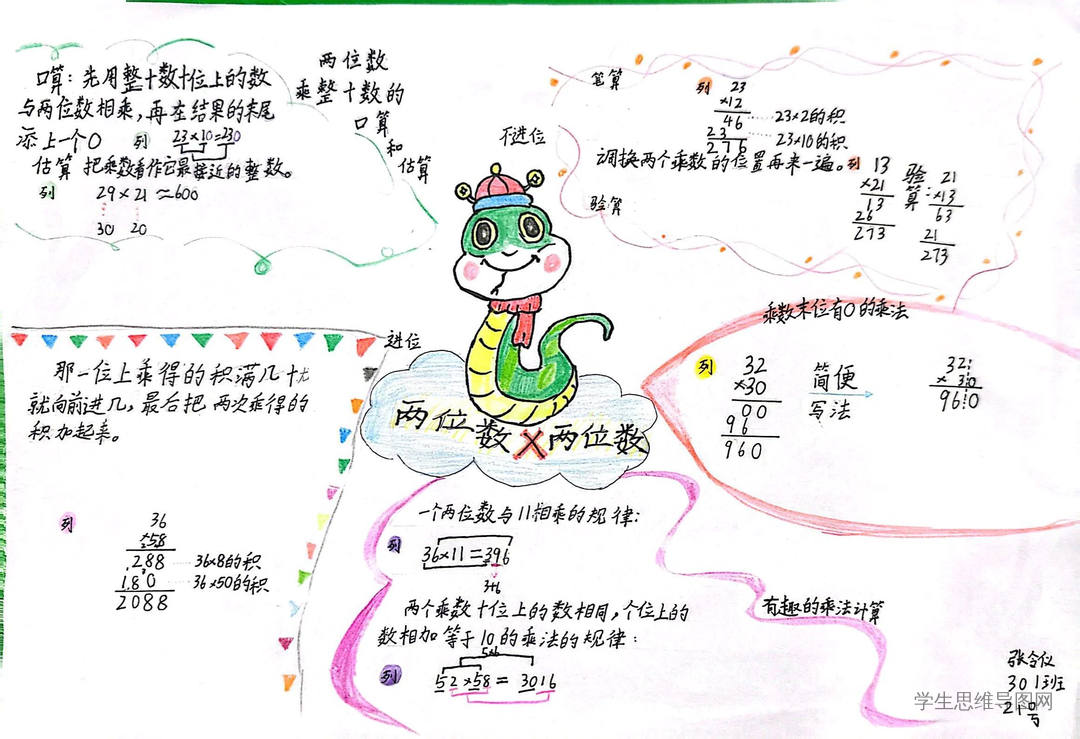 口算：先用整十数十位上的数
与两位数相乘，再在结果的末尾
添上一个0 列 23×10=230
估算 把乘数看作它最接近的整数。
列 29×21≈600
30 20
两位数
乘整十数的
口算
和
估算
不进位
笔算
列 23
×12
46 23×2的积
23 23×10的积
276
调换两个乘数的位置再来一遍。
验算
列 13
×21
13
26
273
验算： 21
×13
63
21
273
进位
那一位上乘得的积满几十
就向前进几，最后把两次乘得的
积加起来。
列 36
×58
288 36×8的积
180 36×50的积
2088
两位数×两位数
乘数末位有0的乘法
列 32
×30
00
96
960
简便
写法
32
×30
960
一个两位数与11相乘的规律：
列 36×11=396
3+6
两个乘数十位上的数相同，个位上的
数相加等于10的乘法的规律：
5×6
列 52×58=3016
有趣的乘法计算
301班
21号
学生思维导图网